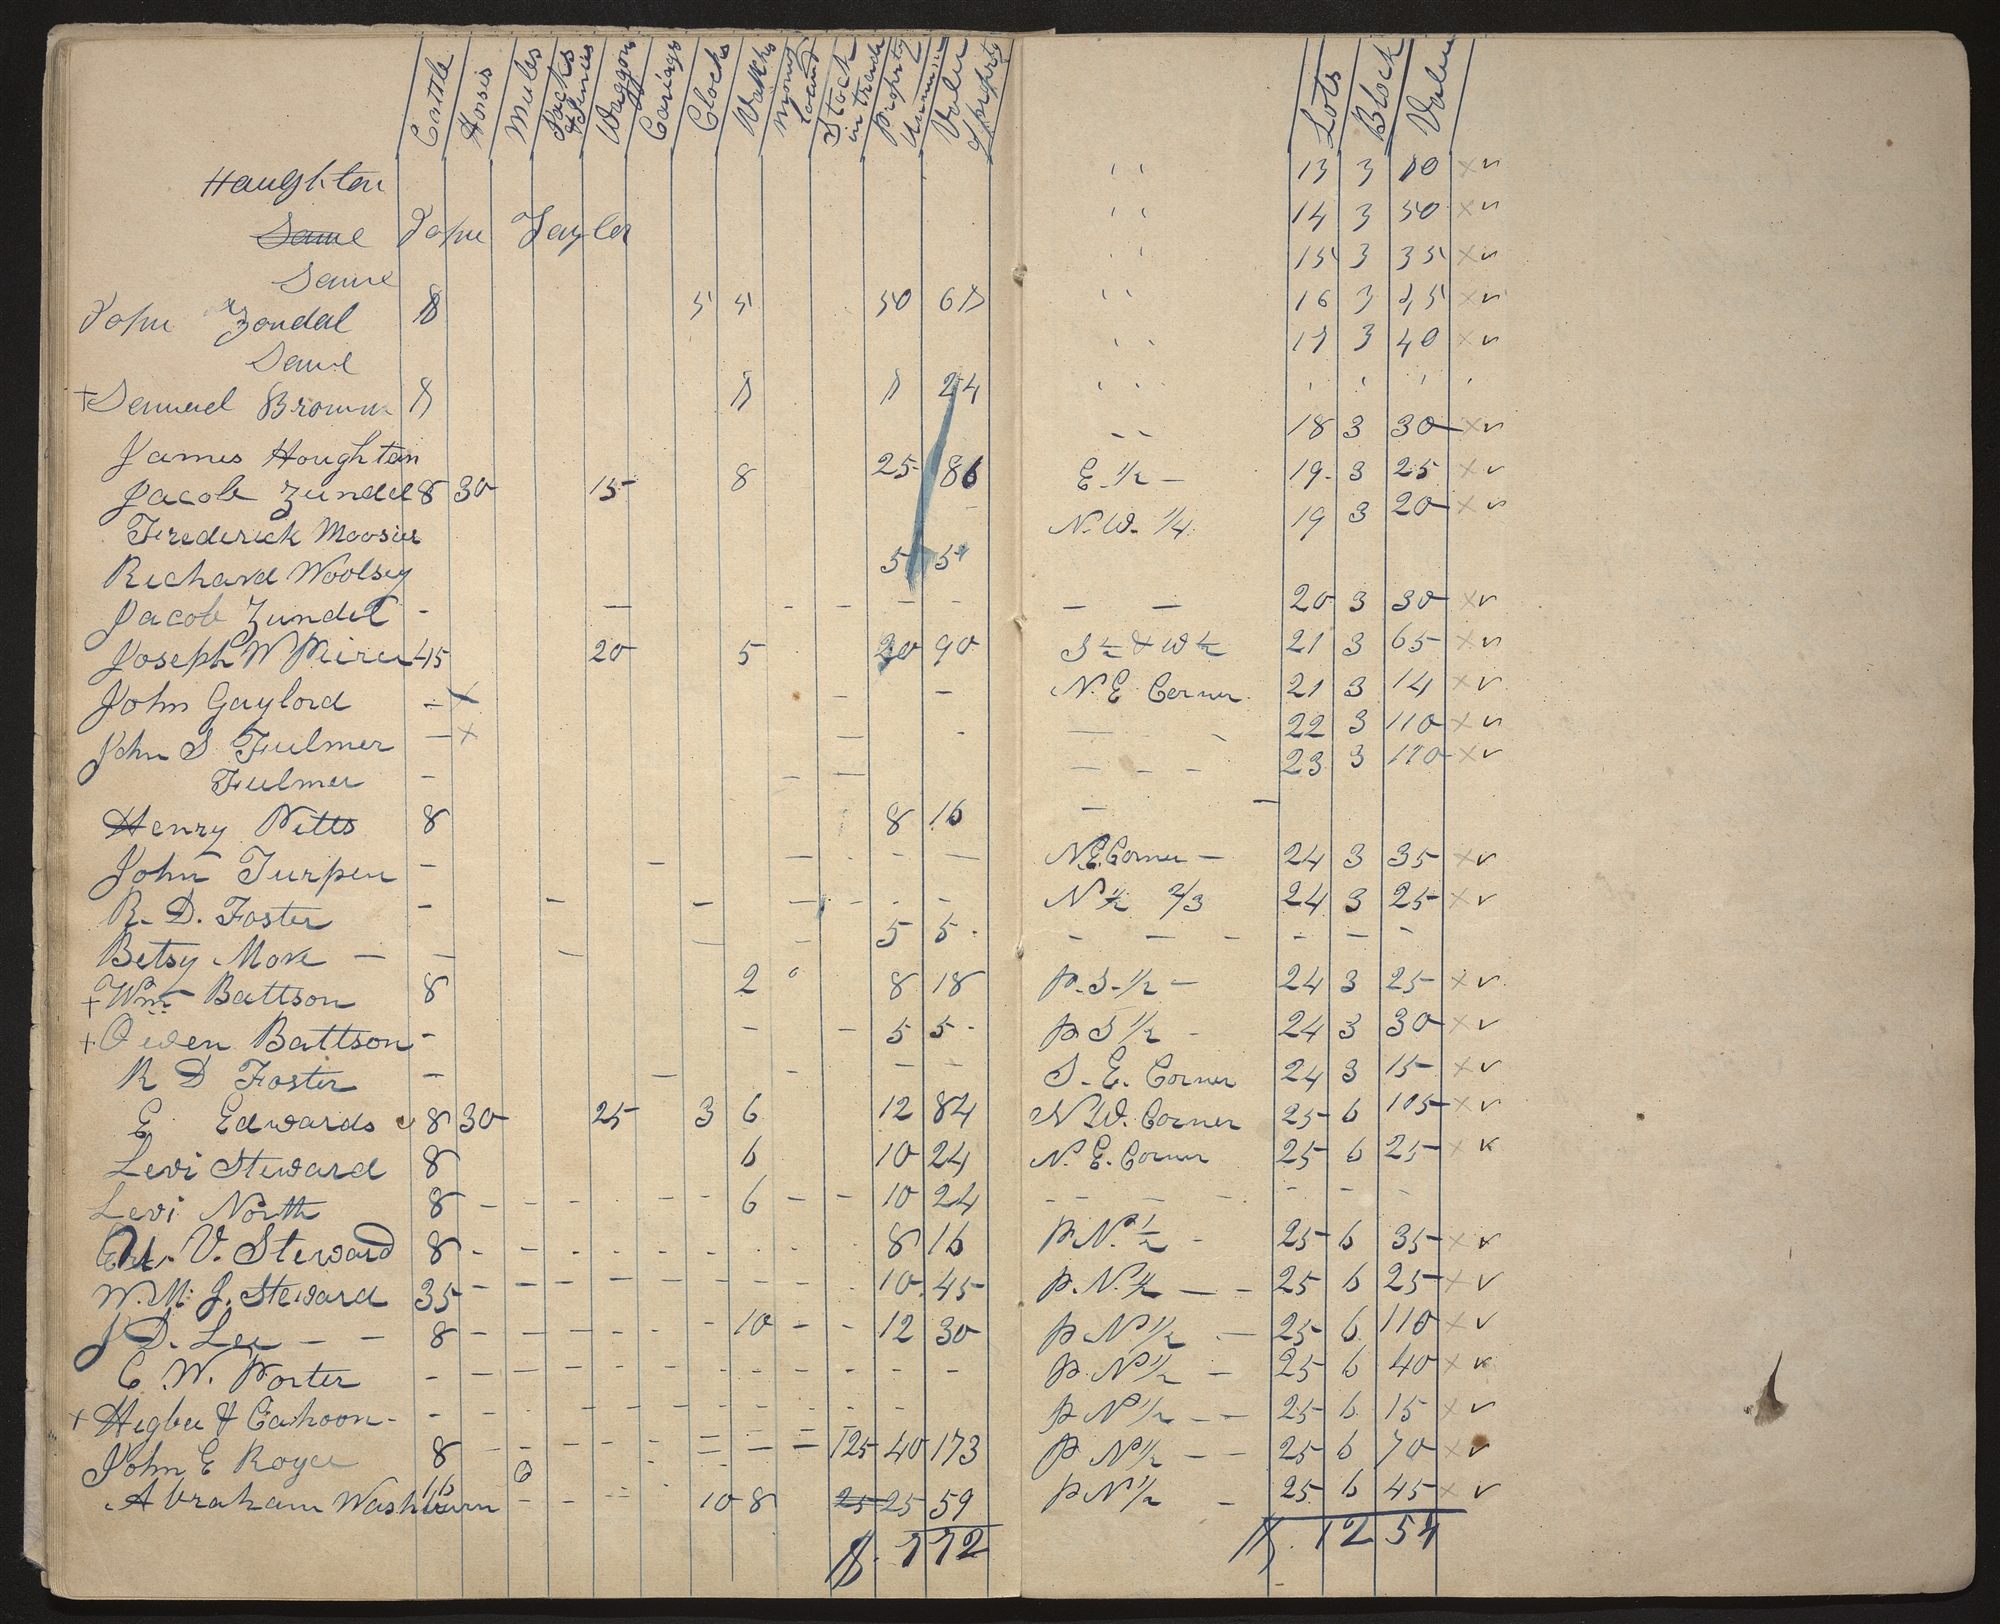 Cattle Horses Mules Jacks & Jennies Waggons Cariage Clocks Watches Money Loand Stock in trade Property Unnum Value of proprty Lots Block Value
Haughton '' 13 3 80 × v
Same John Taylor '' 14 3 50 × v
Same '' 15 3 35 × v
John Zondal 8 5 5 50 68 '' 16 3 45 × v
Same '' 17 3 40 × v
+ Samuel Browm 8 8 8 24 '' ' ' ' '
James Houghtan -- 18 3 30 × v
Jacob Zundel 8 30 15 8 25 86 E ½ - 19 3 25 × v
Frederick Moosier N.W. ¼ 19 3 20 × v
Richard Woolsey 5 5
Jacob Zundel - — - - - - — — 20 3 30 × v
Joseph W Pierce 45 20 5 20 90 S ½ & W ½ 21 3 65 × v
John Gaylord - × - - N.E. Corner 21 3 14 × v
John S. Fulmer - × - - — 22 3 110 × v
Fulmer - - - — - - 23 3 110 × v
Henry Nitts 8 8 16 - -
John Turpin - - - - - - N.E. Corner - 24 3 35 × v
R. D. Foster - - - - - - - N ½ 2/3 24 3 25 × v
Betsy More — - - - - 5 5 - - - - - - -
+ Wm Battson 8 2 8 18 p. S. ½ - 24 3 25 × v
+ Owen Battson - - - 5 5 p S ½ - 24 3 30 × v
R D Foster - - - - - S. E. Corner 24 3 15 × v
E Edwards 8 30 25 3 6 12 84 N.W. Corner 25 6 105 × v
Levi Steward 8 6 10 24 N. E. Corner 25 6 25 × v
Levi North 8 - - - - - 6 - - 10 24 - - - - - - -
V. Steward 8 - - - - - - - - - 8 16 p N. ½ - 25 6 35 × v
W.M. J. Steward 35 - - - - - - - - - 10 45 p. N. ½ — - 25 6 25 × v
J D. Lee - - 8 - - - - - - 10 - - 12 30 p N ½ — 25 6 110 × v
C. W. Porter - - - - - - - - - - - - p. N ½ — 25 6 40 × v
+ Higbee & Cahoon - - - - - - - - - - - - p N ½ - - 25 6 15 × v
John E Royce 8 - - - - - - - 125 40 173 p N ½ - - 25 6 70 × v
Abraham Washburn 16 - - - 10 8 25 25 59 p N ½ - 25 6 45 × v
$. 772 $. 1254